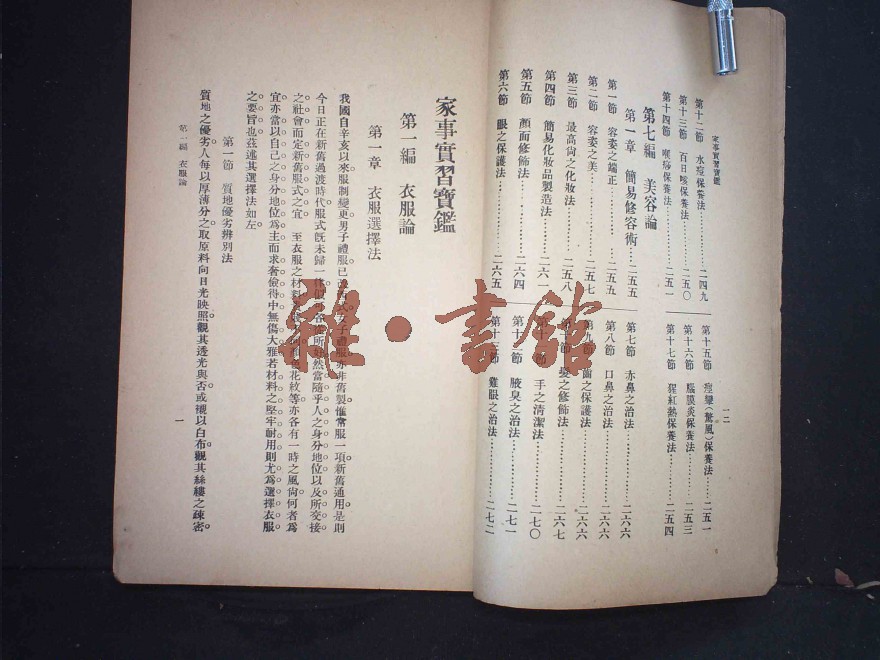 家事實習寶鑑
第十二節 水痘保養法………二四九
第十三節 百日咳保養法………二五〇
第十四節 喉痧保養法………二五一
第七編 美容論
第一章 簡易修容術………二五五
第一節 容姿之端正………二五五
第二節 容姿之美………二五七
第三節 最高尙之化妝法………二五八
第四節 簡易化妝品製造法………二六一
第五節 顏面修飾法………二六四
第六節 眼之保護法………二六五
第十五節 痙攣(驚風)保養法………二五一
第十六節 腦膜炎保養法………二五三
第十七節 猩紅熱保養法………二五四
第七節 赤鼻之治法………二六六
第八節 口鼻之治法………二六六
第九節 齒之保護法………二六六
第十節 髮之修飾法………二六七
第十一節 手之清潔法………二七〇
第十二節 腋臭之治法………二七一
第十三節 雞眼之治法………二七二
一二
家事實習寶鑑
第一編 衣服論
第一章 衣服選擇法
我國自辛亥以來服制變更男子禮服已改西式女子禮服亦非舊製惟常服一項新舊通用是則
今日正在新舊過渡時代服式旣未歸一律然當隨乎人之身分地位以及所交接
之社會而定新舊服式之宜 至衣服之材料花紋等亦各有一時之風尙何者爲
宜亦當以自己之身分地位爲主而求奢儉得中無傷大雅若材料之堅牢耐用則尤爲選擇衣服
之要旨也玆述其選擇法如左
第一節 質地優劣辨別法
質地之優劣人每以厚薄分之取原料向日光映照觀其透光與否或襯以白布觀其絲縷之疎密
第一編 衣服論
一
雜·書館